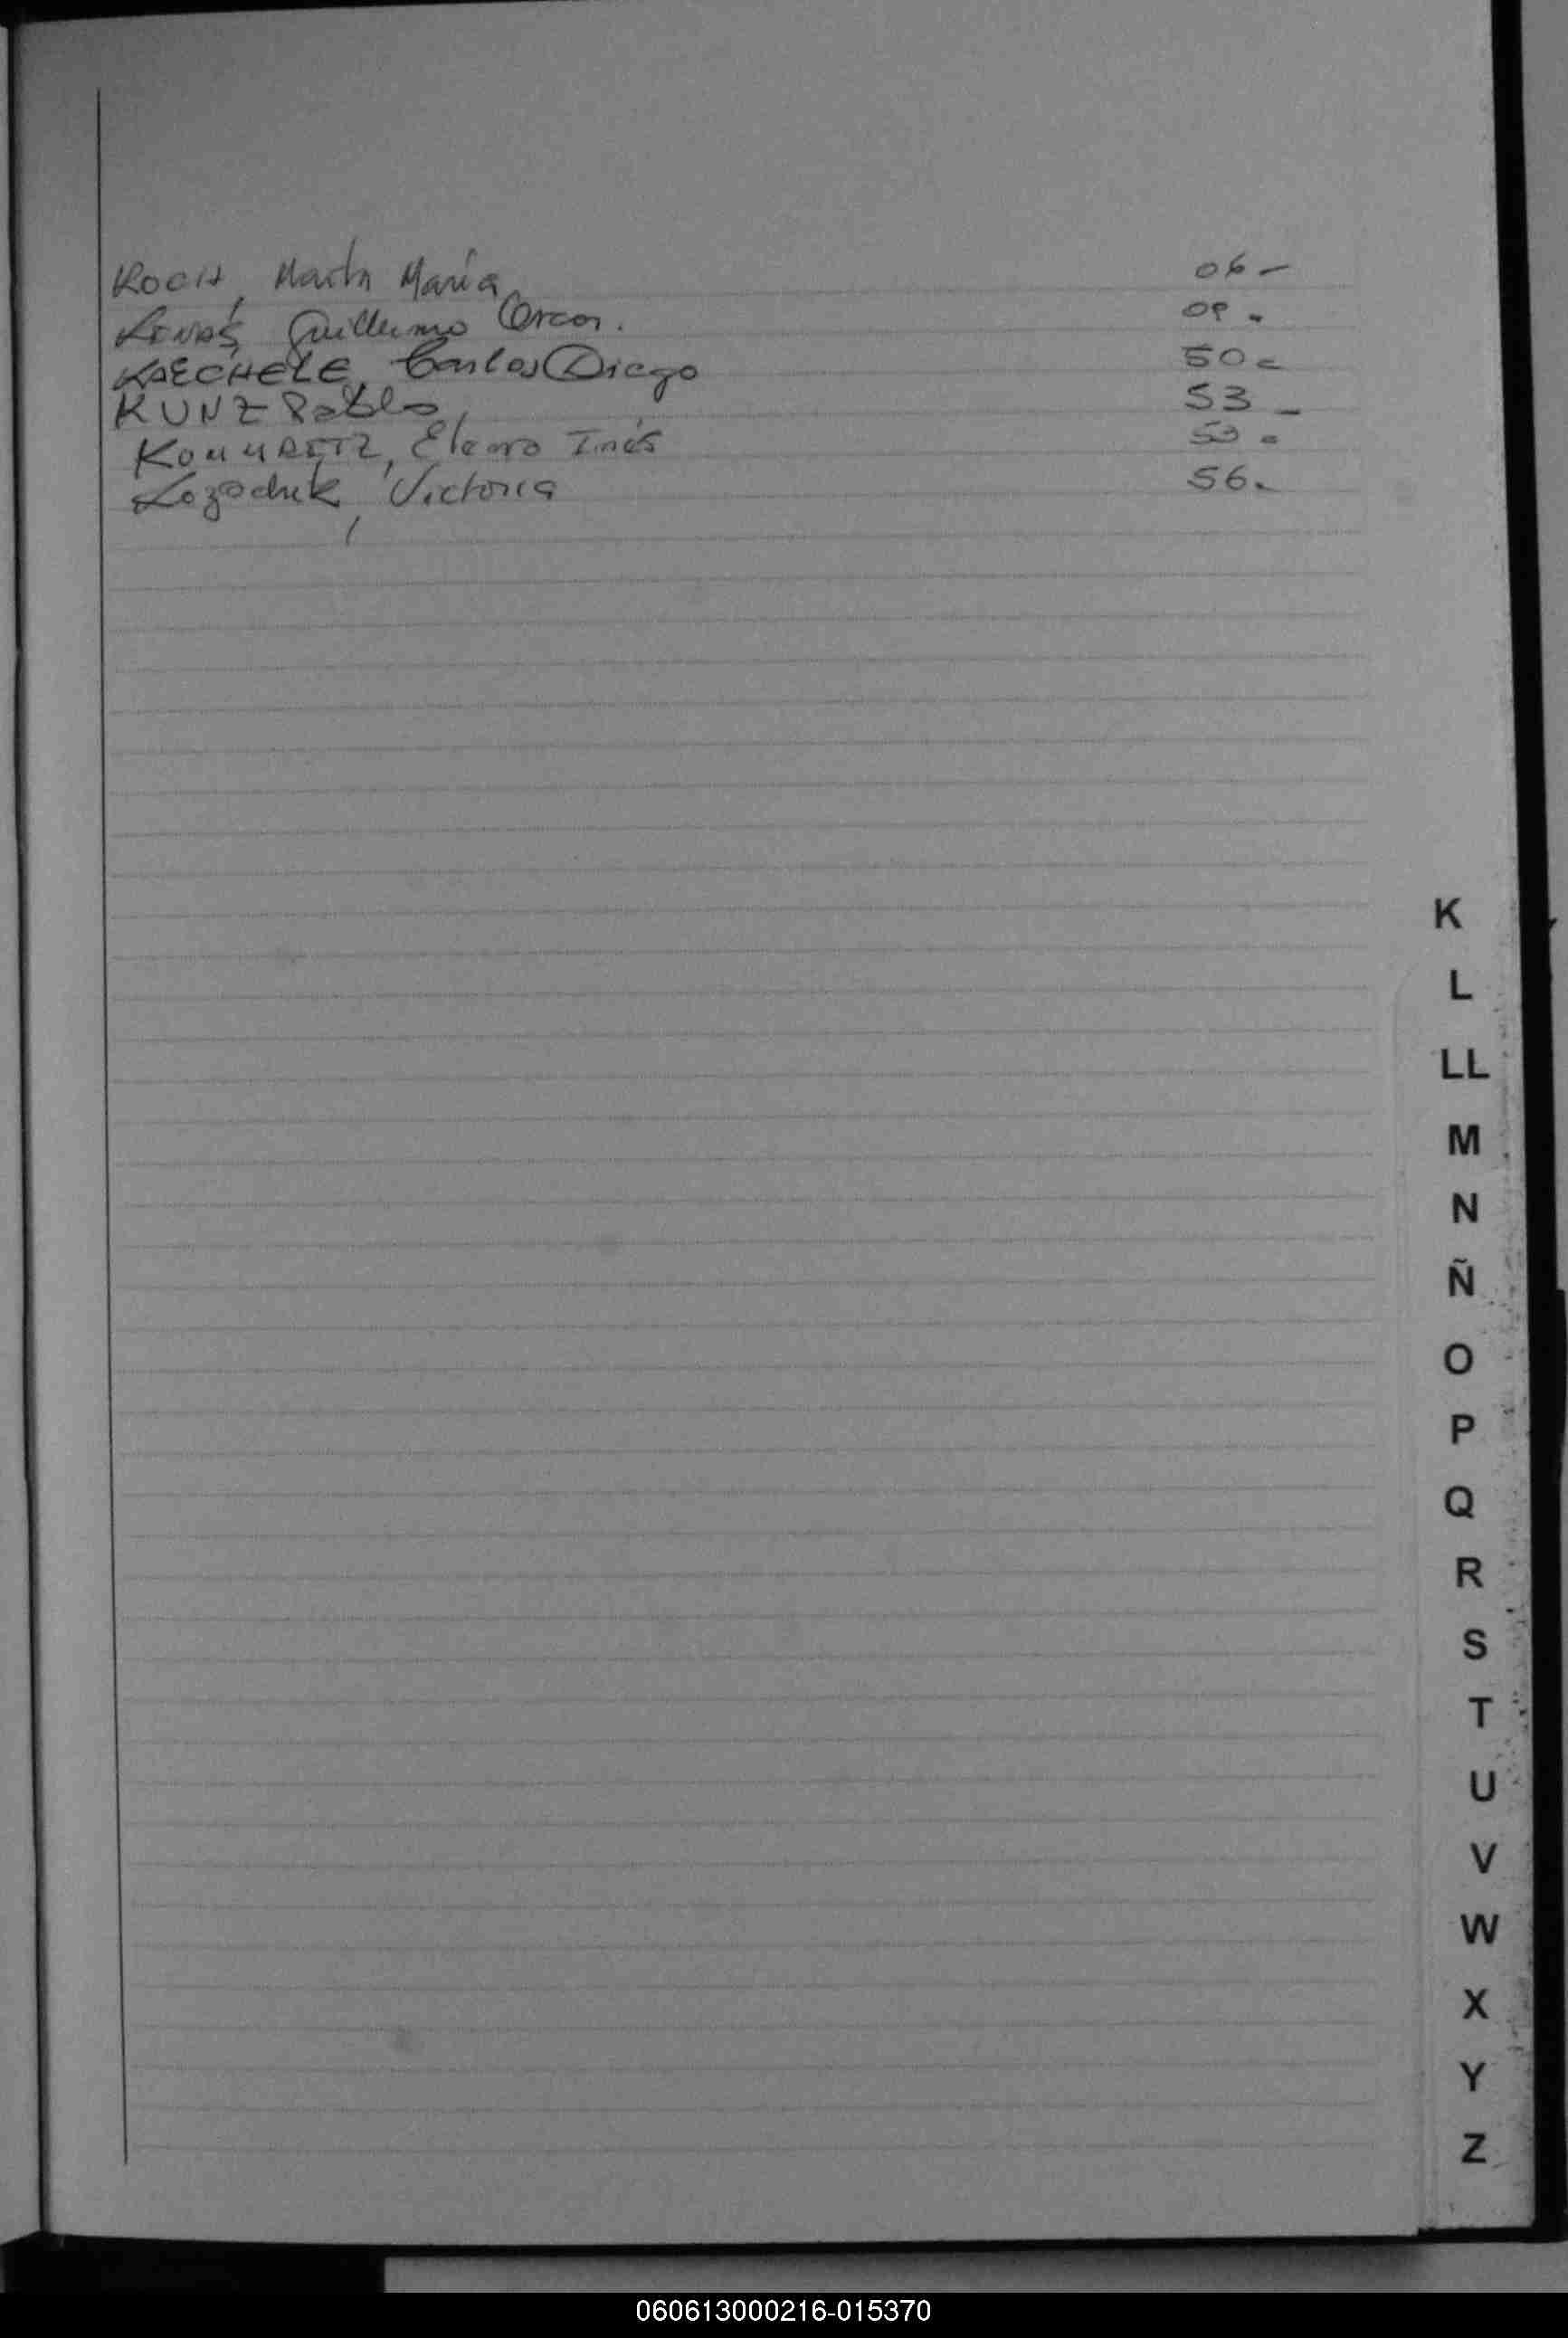 KOCH, Marta María 06-
Guillermo Oscar. 09.
KAECHELE, Carlos Diego 50-
KUNZ Pablo, 53-
Inés 53.
Kozachuk, Victoria 56.
K
L
LL
M
N
Ñ
O
P
Q
R
S
T
U
V
W
X
Y
Z
060613000216-015370